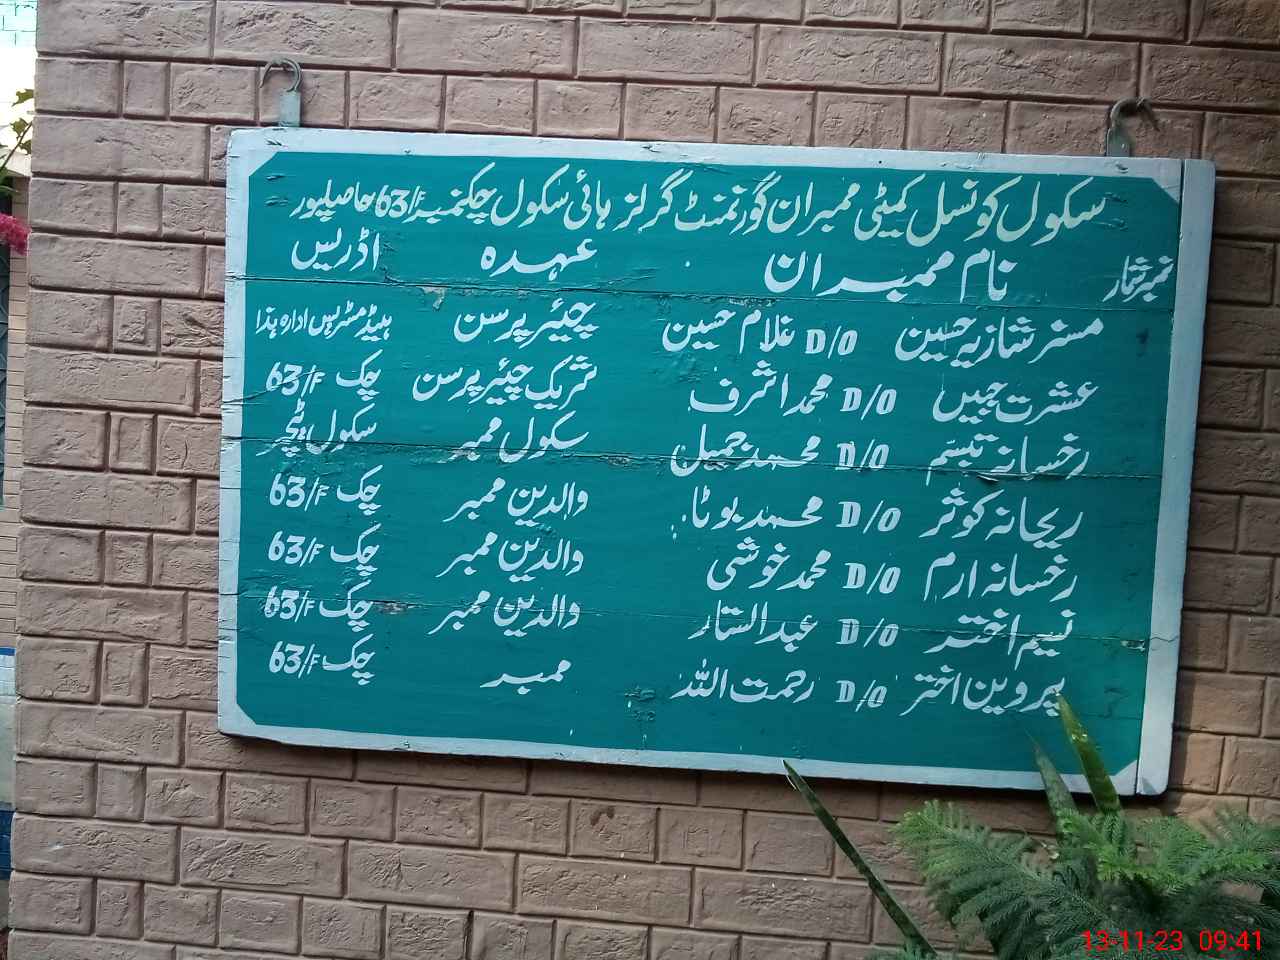 سکول کونسل کمیٹی ممبران گورنمنٹ گرلز ہائی سکول چکنمبر 63/F حاصلپور
نمبر شمار نام ممبران عہدہ اڈریس
مسنر شازیہ حسین D/O غلام حسین چیئرپرسن ہیڈمسٹریس ادارہ ہذا
عشرت جبیں D/O محمد اشرف شریک چیئرپرسن چک 63/F
رخسانہ تبسّم D/O محمد جمیل سکول ممبر سکول ٹیچر
ریحانہ کوثر D/O محمد بوٹا والدین ممبر چک 63/F
رخسانہ ارم D/O محمد خوشی والدین ممبر چک 63/F
نسیم اختر D/O عبدالستار والدین ممبر چک 63/F
پروین اختر D/O رحمت اللہ ممبر چک 63/F
13-11-23 09:41